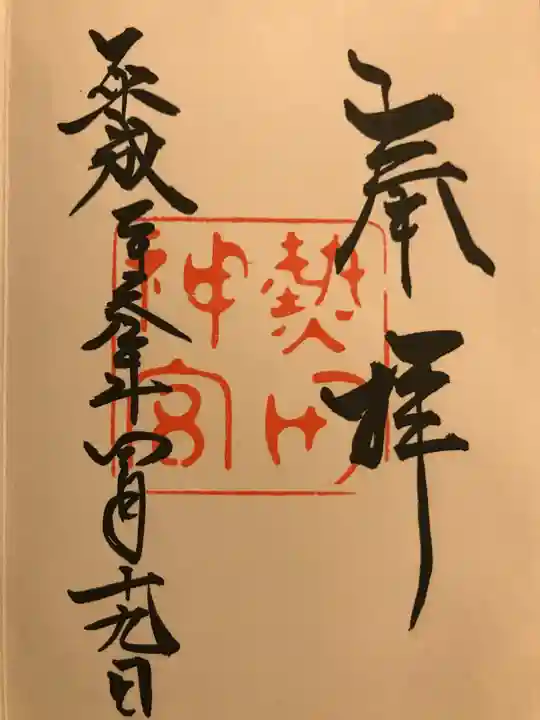 奉拝
熱田
神宮
平成二十年四月十九日